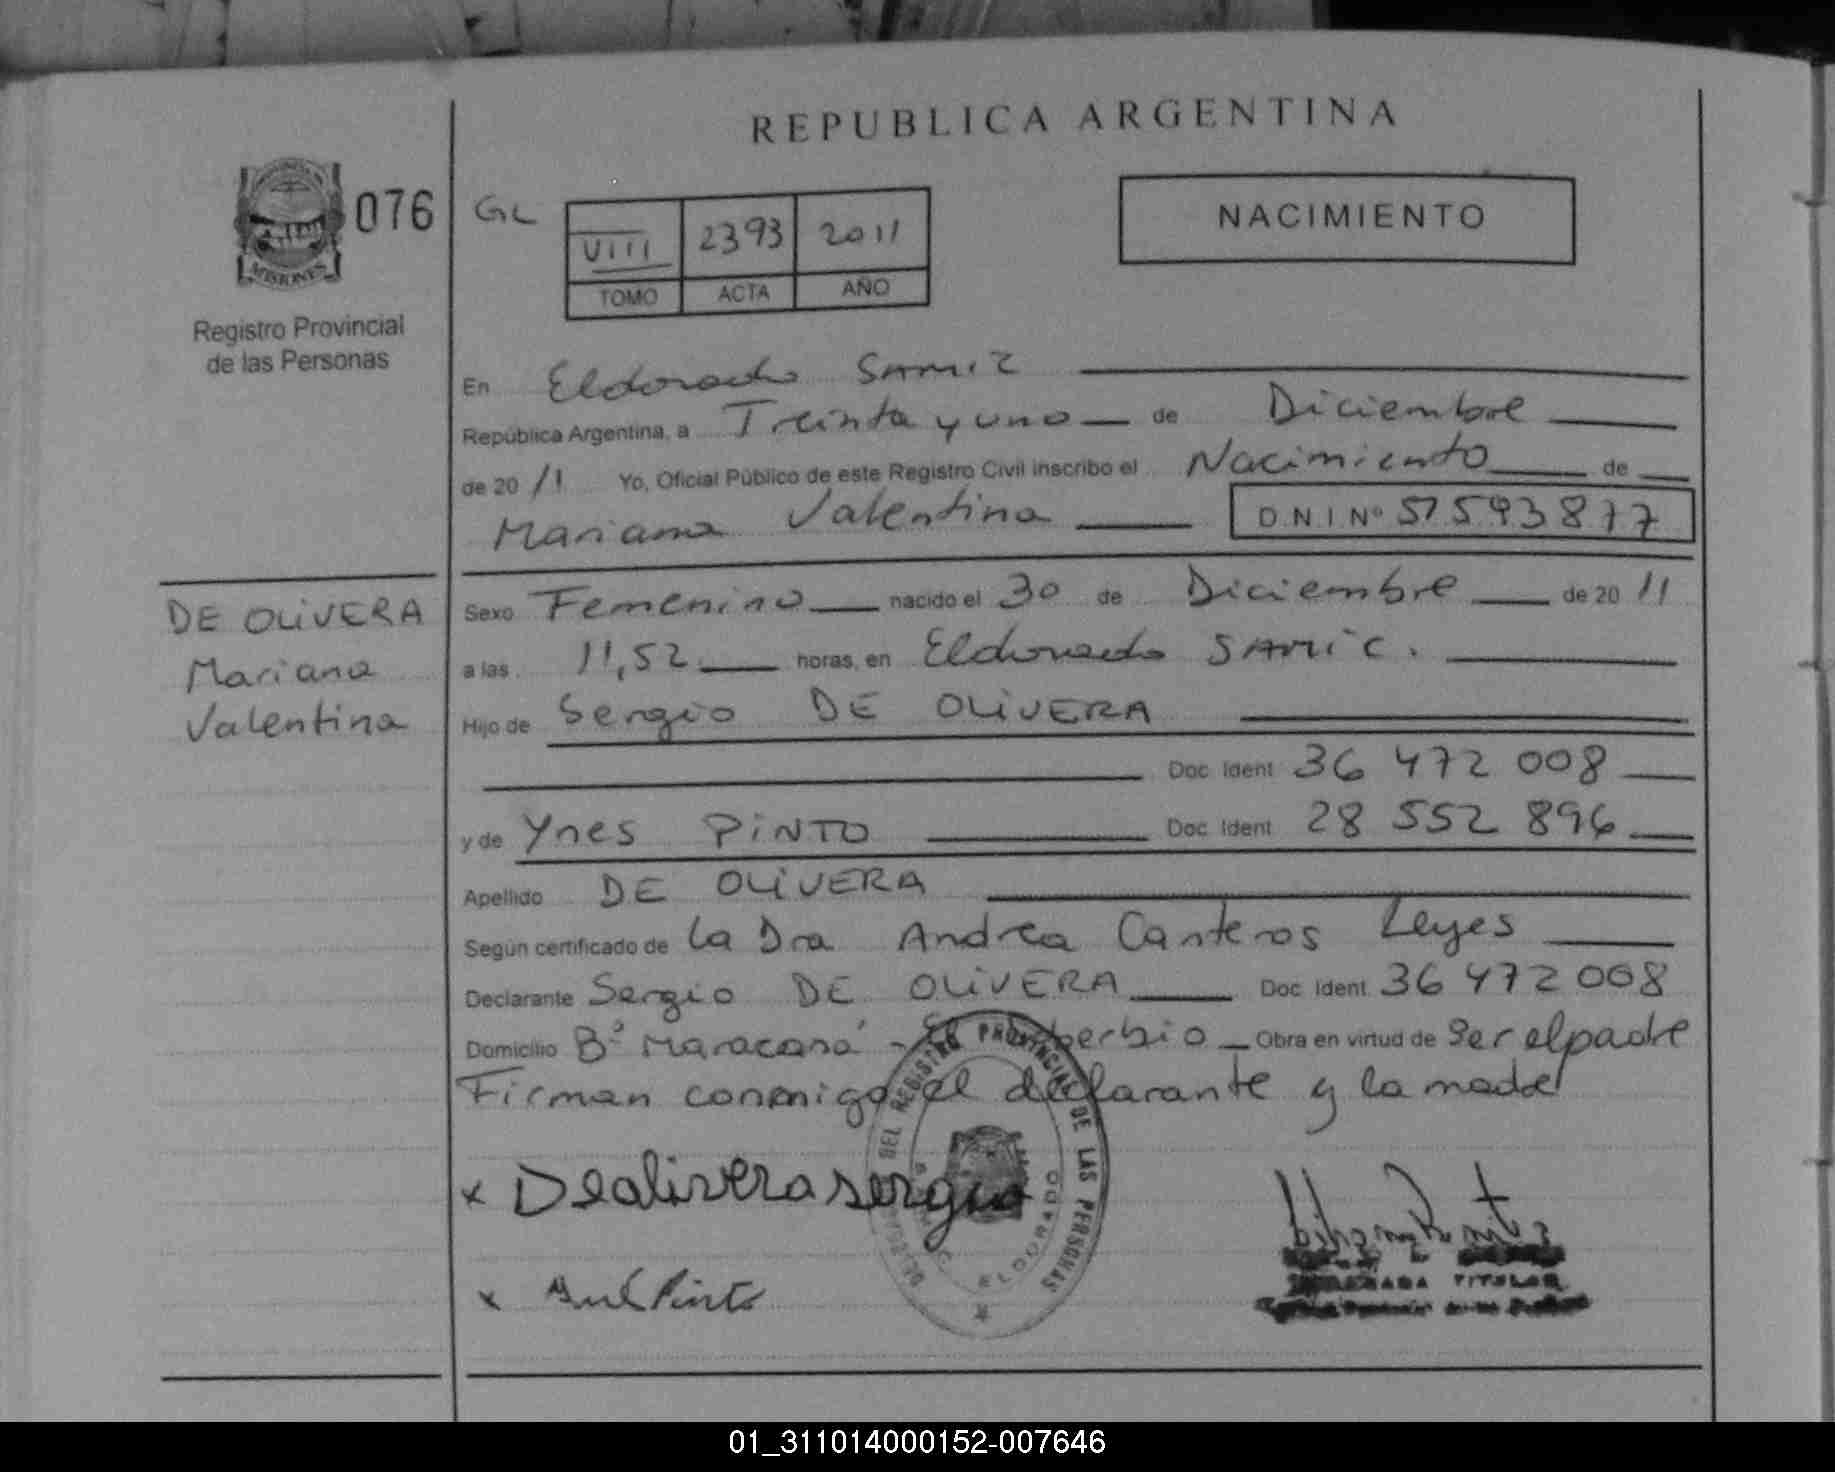 REPUBLICA ARGENTINA
076
GL
VIII 2393 2011
TOMO ACTA AÑO
NACIMIENTO
MISIONES
Registro Provincial
de las Personas
En Eldorado SAMIC
República Argentina, a Treinta y uno de Diciembre
de 20 11 Yo, Oficial Público de este Registro Civil inscribo el Nacimiento de
Mariana Valentina D.N.I Nº 51593877
DE OLIVERA
Mariana
Valentina
Sexo Femenino nacido el 30 de Diciembre de 20 11
a las 11,52 horas, en Eldorado SAMIC.
Hijo de Sergio DE OLIVERA
Doc. Ident 36 472 008
y de Ynes PINTO Doc. Ident. 28 552 896
Apellido DE OLIVERA
Según certificado de La Dra Andrea Canteros Leyes
Declarante Sergio DE OLIVERA Doc. Ident. 36 472 008
Domicilio Bº Maracaná - Obra en virtud de Ser el padre
Firman conmigo el declarante y la madre
x Deolivera sergio
x Pinto
DEL REGISTRO PROVINCIAL DE LAS PERSONAS
ELDORADO
TITULAR
01_311014000152-007646